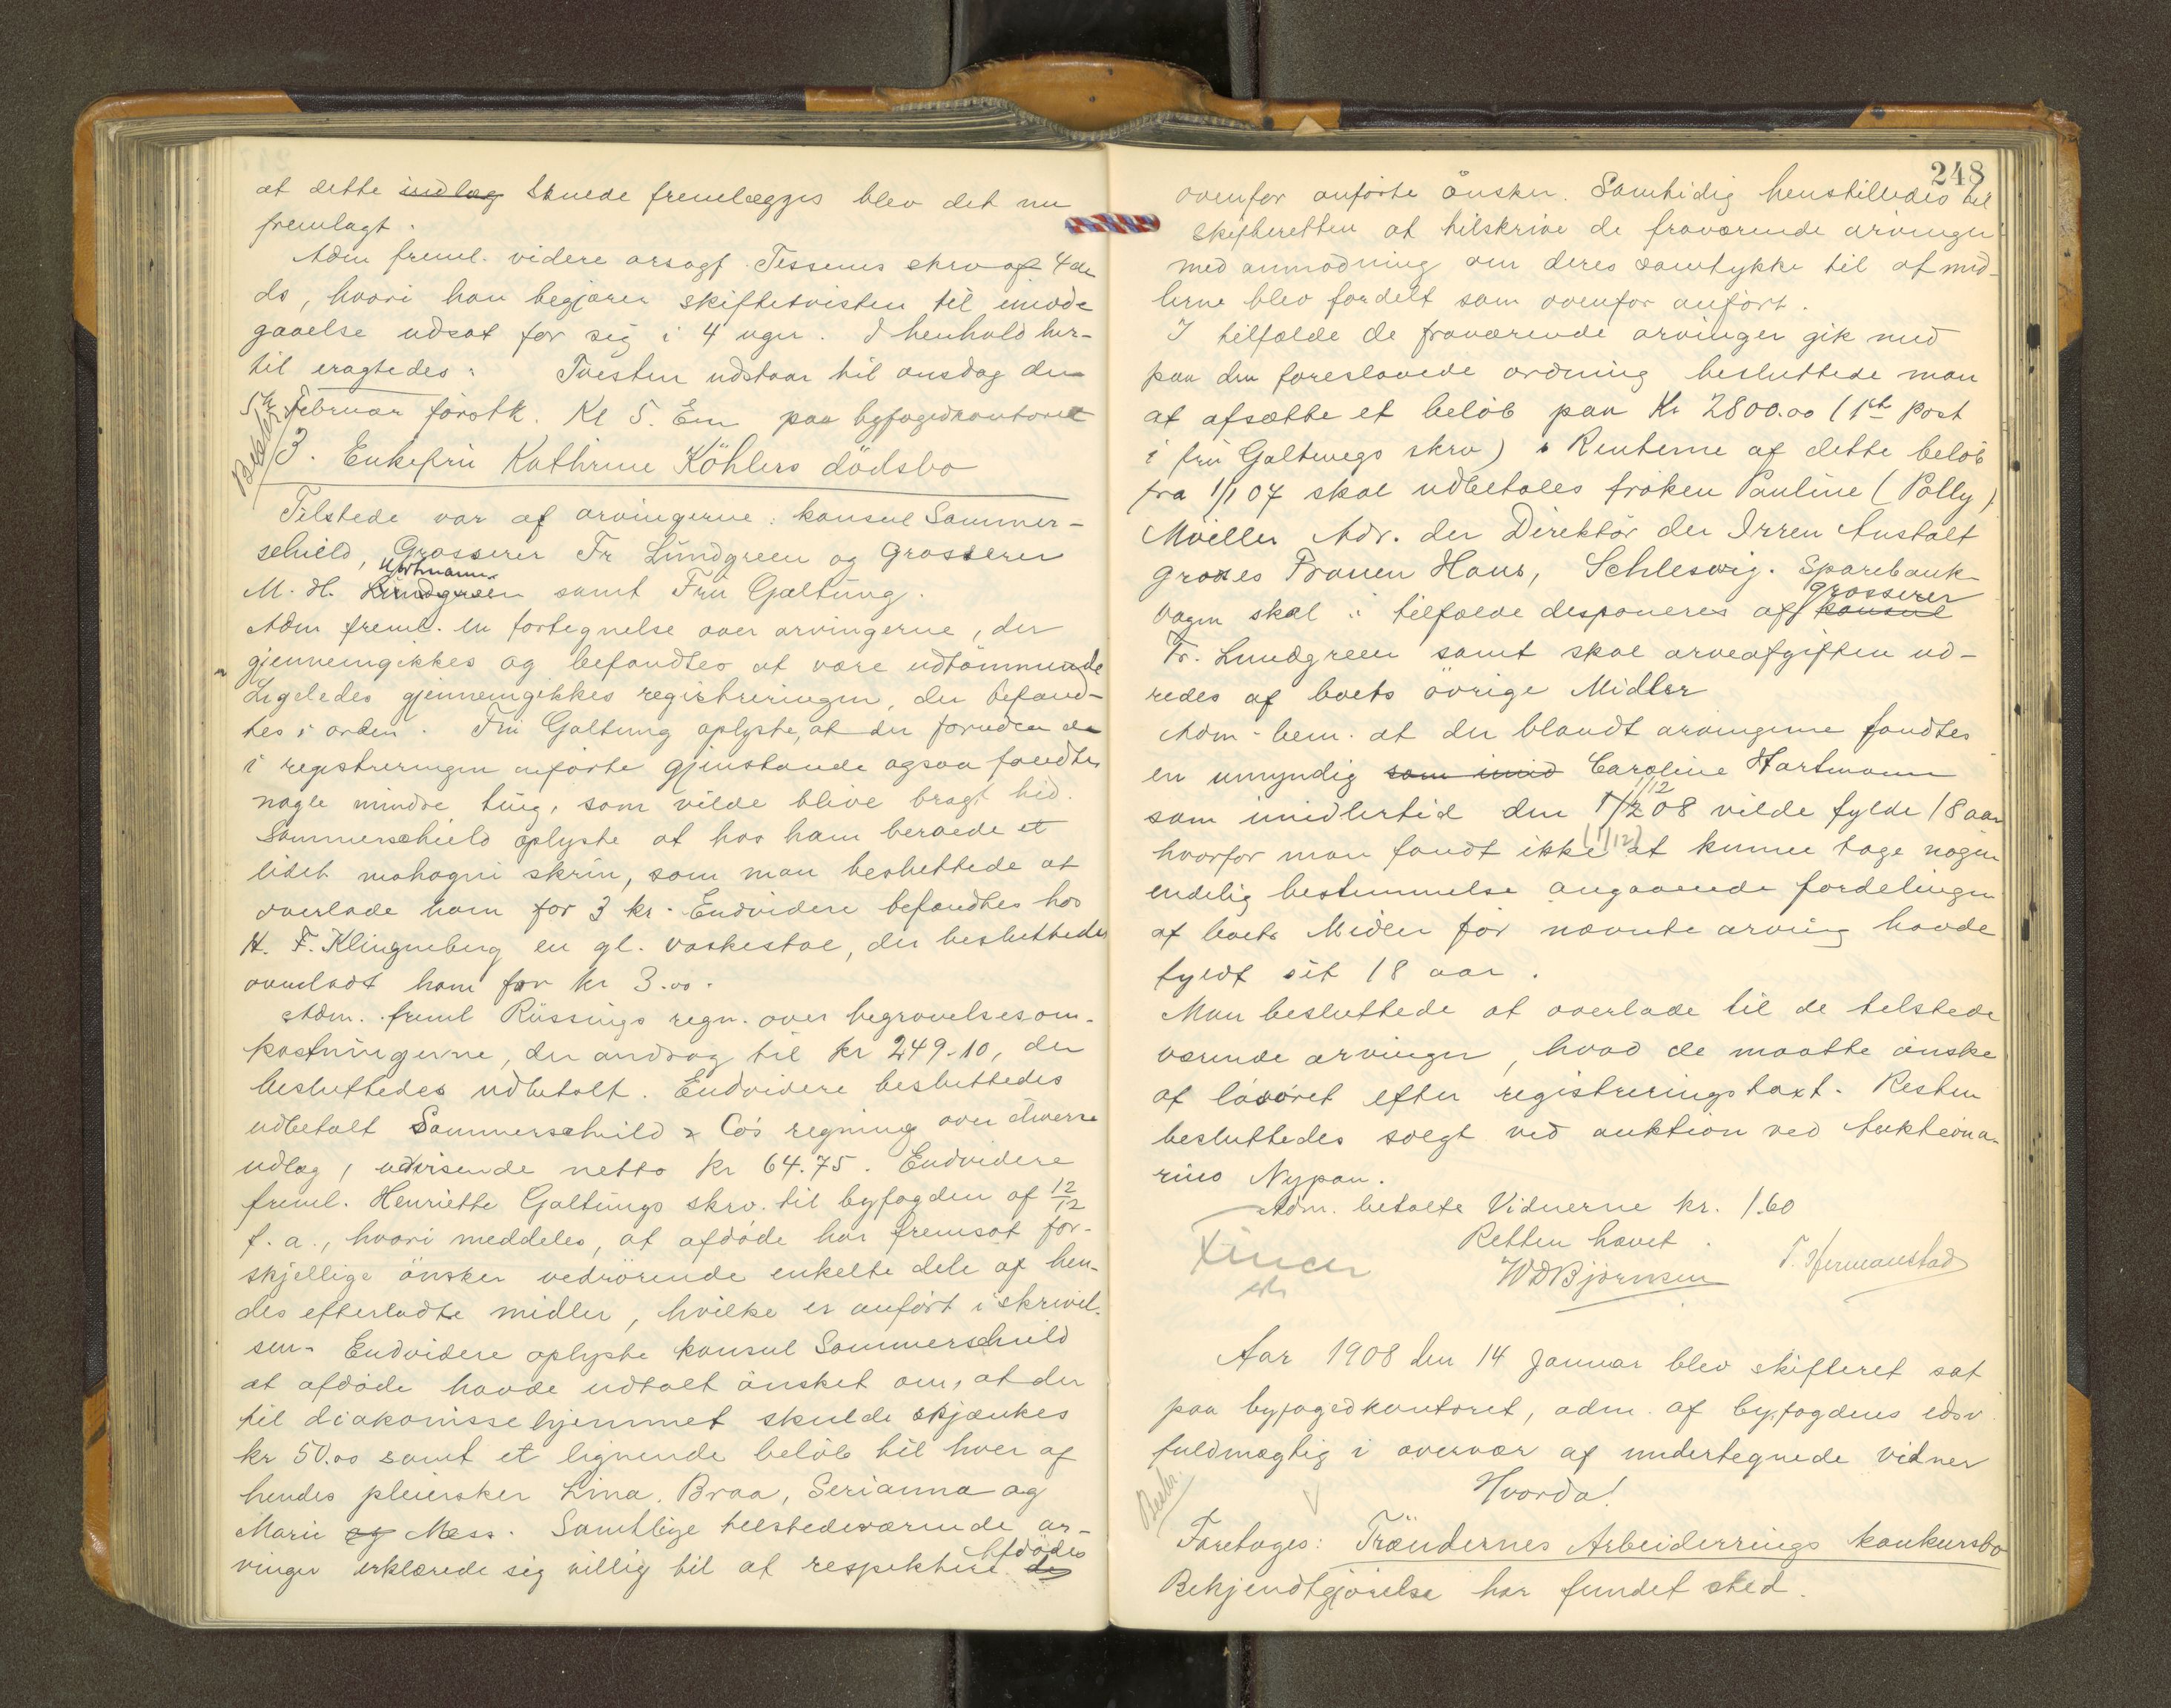 at dette indlæg skuede fremlægges blev det nu
fremlagt.
Adm freml. videre orsagf. Tessems skrv af 4de
ds, hvori han begjærer skiftetvisten til imøde
gaaelse udsat for sig i 4 uger. I henhold her-
til eragtedes: Tvisten udstaar til onsdag den
5te Februar förstk. Kl 5. Em paa byfogedkontoret
Beslr
3. Enkefru Kathrine Köhlers dödsbo
Tilstede var af arvingerne: konsul Sommer-
schield, Grosserer Fr Lundgreen og Grosserer
Hartmann
M. H. Lundgreen samt Fru Galtung.
Adm freml. en fortegnelse over arvingerne, der
gjennemgikkes og befandtes at være udtömmende
Ligeledes gjennemgikkes registreringen, der befand-
tes i orden. Fru Galtung oplyste, at der foruden de
i registreringen anförte gjenstande ogsaa fandtes
nogle mindre ting, som vilde blive bragt hid.
Sommerschield oplyste at hos ham beroede et
lidet mahogni skrin, som man besluttede at
overlade ham for 3 kr. Endvidere befandtes hos
H. F. Klingenberg en gl. vaskestol, der besluttedes
overladt ham for kr 3.00.
Adm. freml Rüssings regn. over begravelsesom-
kostningerne, der androg til kr 249.10, der
besluttedes udbetalt. Endvidere besluttedes
udbetalt Sommerschield & Co's regning over diverse
udlæg, udvisende netto kr 64.75. Endvidere
freml. Henriette Galtungs skrv. til byfogden af 12/12
f. a., hvori meddeles, at afdöde har fremsat for-
skjellige önsker vedrörende enkelte dele af hen-
des efterladte midler, hvilke er anfört i skrivel-
sen. Endvidere oplyste konsul Sommerschield
at afdöde havde udtalt önsket om, at der
til diakonissehjemmet skulde skjænkes
kr 50.00 samt et lignende belöb til hver af
hendes pleiersker Lina, Braa, Serianna og
Marie og Mæss. Samtlige tilstedeværende ar-
Afdödes
vinger erklærede sig villig til at respektere de
248
ovenfor anförte önsker. Samtidig henstilledes til
skifteretten at tilskrive de fraværende arvinger
med anmodning om deres samtykke til at mid-
lerne blev fordelt som ovenfor anfört.
I tilfælde de fraværende arvinger gik med
paa den foreslaaede ordning besluttede man
at afsætte et belöb paa Kr 2800.00 (1ste Post
i fru Galtungs skrv) Renterne af dette belöb
fra 1/1 07 skal udbetales fröken Pauline (Polly)
Möeller Adr. der Direktör der Irren Anstalt
grozes Frauen Haus, Schleswig. Sparebank-
grosserer
bogen skal i tilfælde disponeres af konsul
Fr. Lundgreen samt skal arveafgiften ud-
redes af boets övrige Midler
Adm. bem. at der blandt arvingerne fandtes
en umyndig som imid Caroline Hartmann
1/12
som imidlertid den 1/2 08 vilde fylde 18 aar
(1/12)
hvorfor man fandt ikke at kunne tage nogen
endelig bestemmelse angaaende fordelingen
af boets Midler för nævnte arving havde
fyldt sit 18 aar.
Man besluttede at overlade til de tilstede
værende arvinger, hvad de maatte önske
af lösöret efter registreringstaxt. Resten
besluttedes solgt ved auktion ved Auktiona-
rius Nypan.
Adm. betalte Vidnerne kr. 1.60
Retten hævet.
WDBjörnsen T. Hermanstad
Aar 1908 den 14 Januar blev skifteret sat
paa byfogedkontoret, adm. af byfogdens edsv.
fuldmægtig i overvær af undertegnede vidner
Hvorda!
Beslr.
Foretages: Tröndernes Arbeiderrings konkursbo
Bekjendtgjörelse har fundet sted.